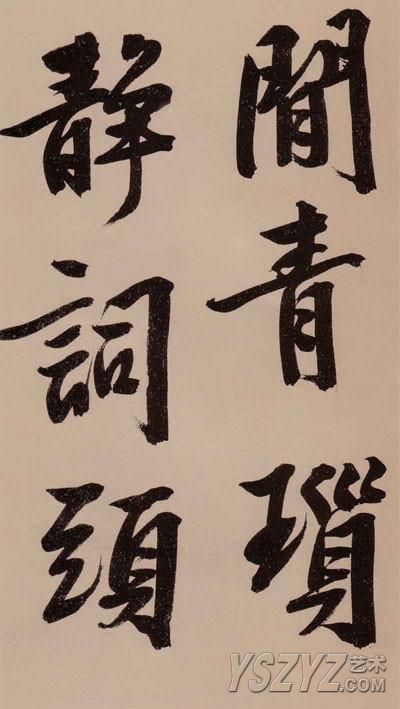 閒青瑣
靜詞頭
YSZYZ艺术
.COM